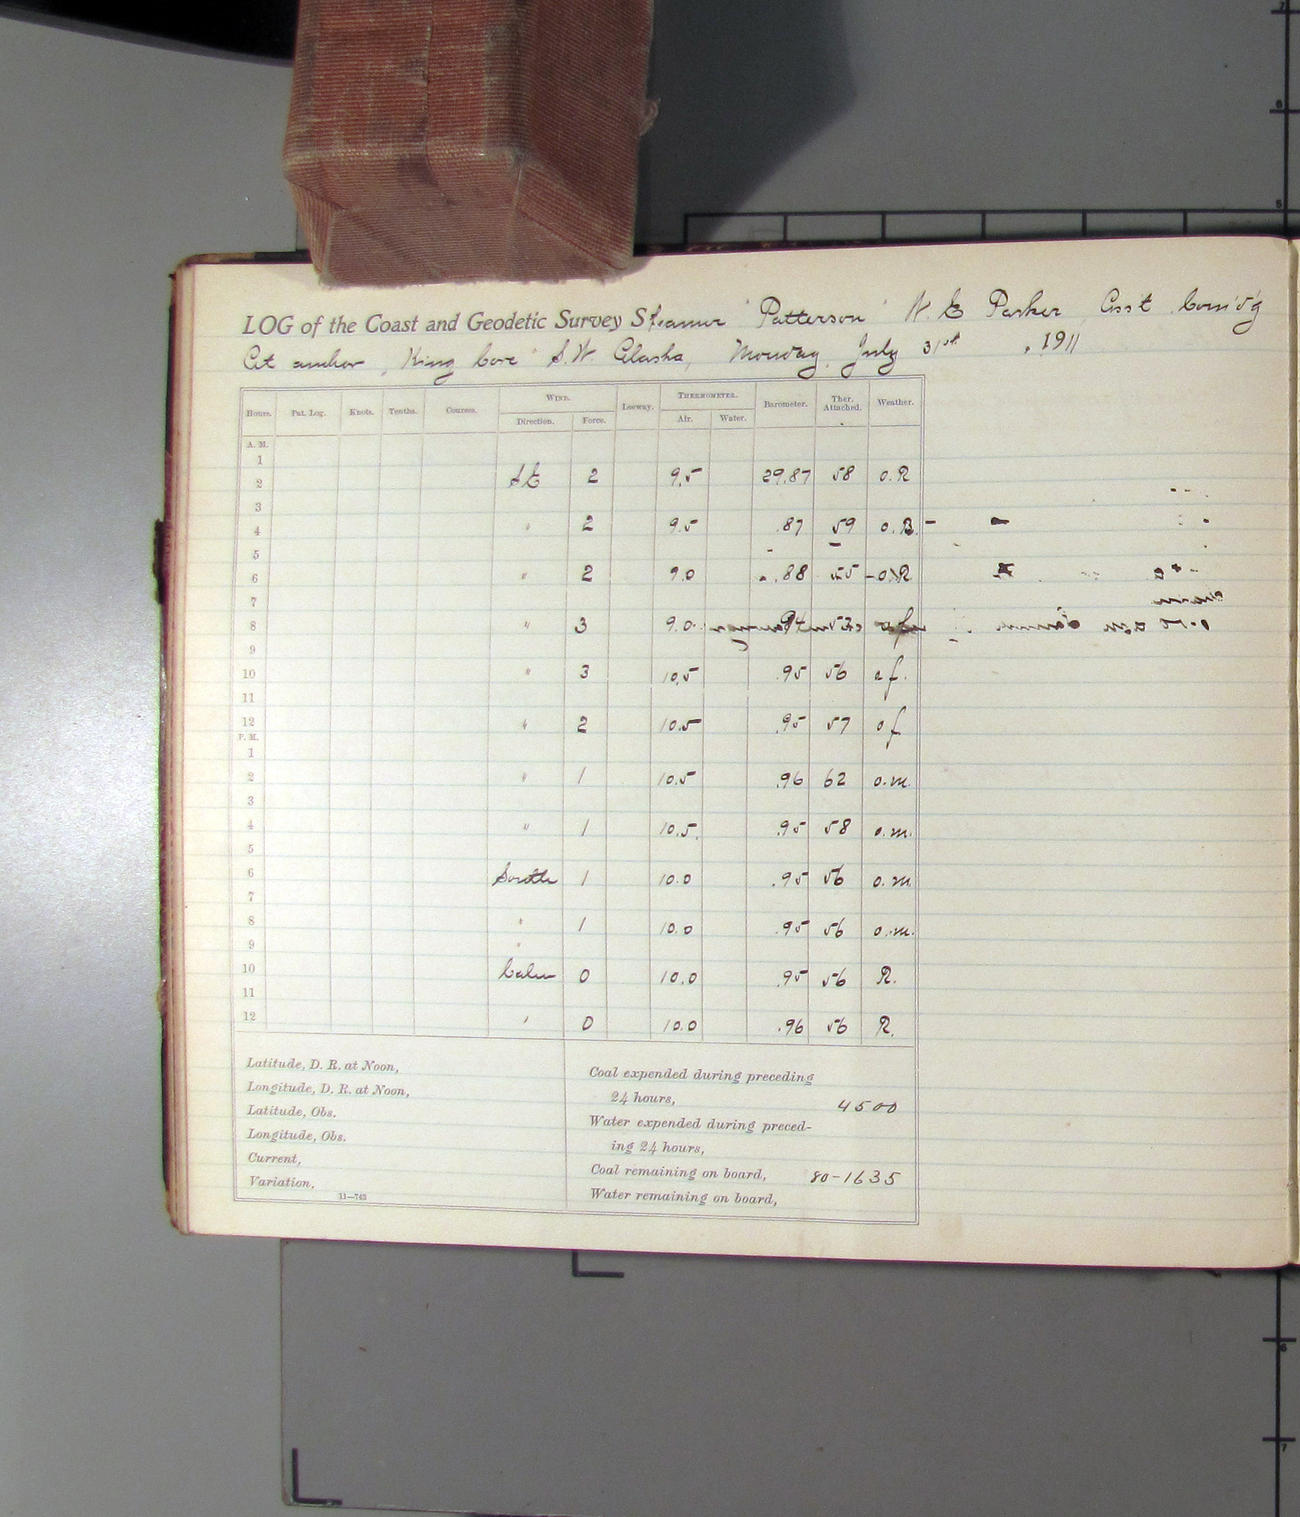 LOG of the Coast and Geodetic Survey Steamer "Patterson" W. E. Parker Asst Com'd'g
At anchor, King Cove S.W. Alaska, Monday July 31st, 1911
Hours. Pat. Log. Knots. Tenths. Courses. WIND. Leeway. THERMOMETER. Barometer. Ther. Attached. Weather.
Direction. Force. Air. Water.
A. M.
1
2 SE 2 9.5 29.87 58 o.R
3
4 " 2 9.5 .87 59 o.R.
5
6 " 2 9.0 .88 55 o.R
7
8 " 3 9.0
9
10 " 3 10.5 .95 56 o f.
11
12 " 2 10.5 .95 57 o f
P. M.
1
2 " 1 10.5 .96 62 o.m.
3
4 " 1 10.5 .95 58 o.m.
5
6 South 1 10.0 .95 56 o.m.
7
8 " 1 10.0 .95 56 o.m.
9 "
10 Calm 0 10.0 .95 56 R.
11
12 " 0 10.0 .96 56 R.
Latitude, D. R. at Noon,
Longitude, D. R. at Noon,
Latitude, Obs.
Longitude, Obs.
Current,
Variation,
11—743
Coal expended during preceding
24 hours, 4500
Water expended during preced-
ing 24 hours,
Coal remaining on board, 80-1635
Water remaining on board,